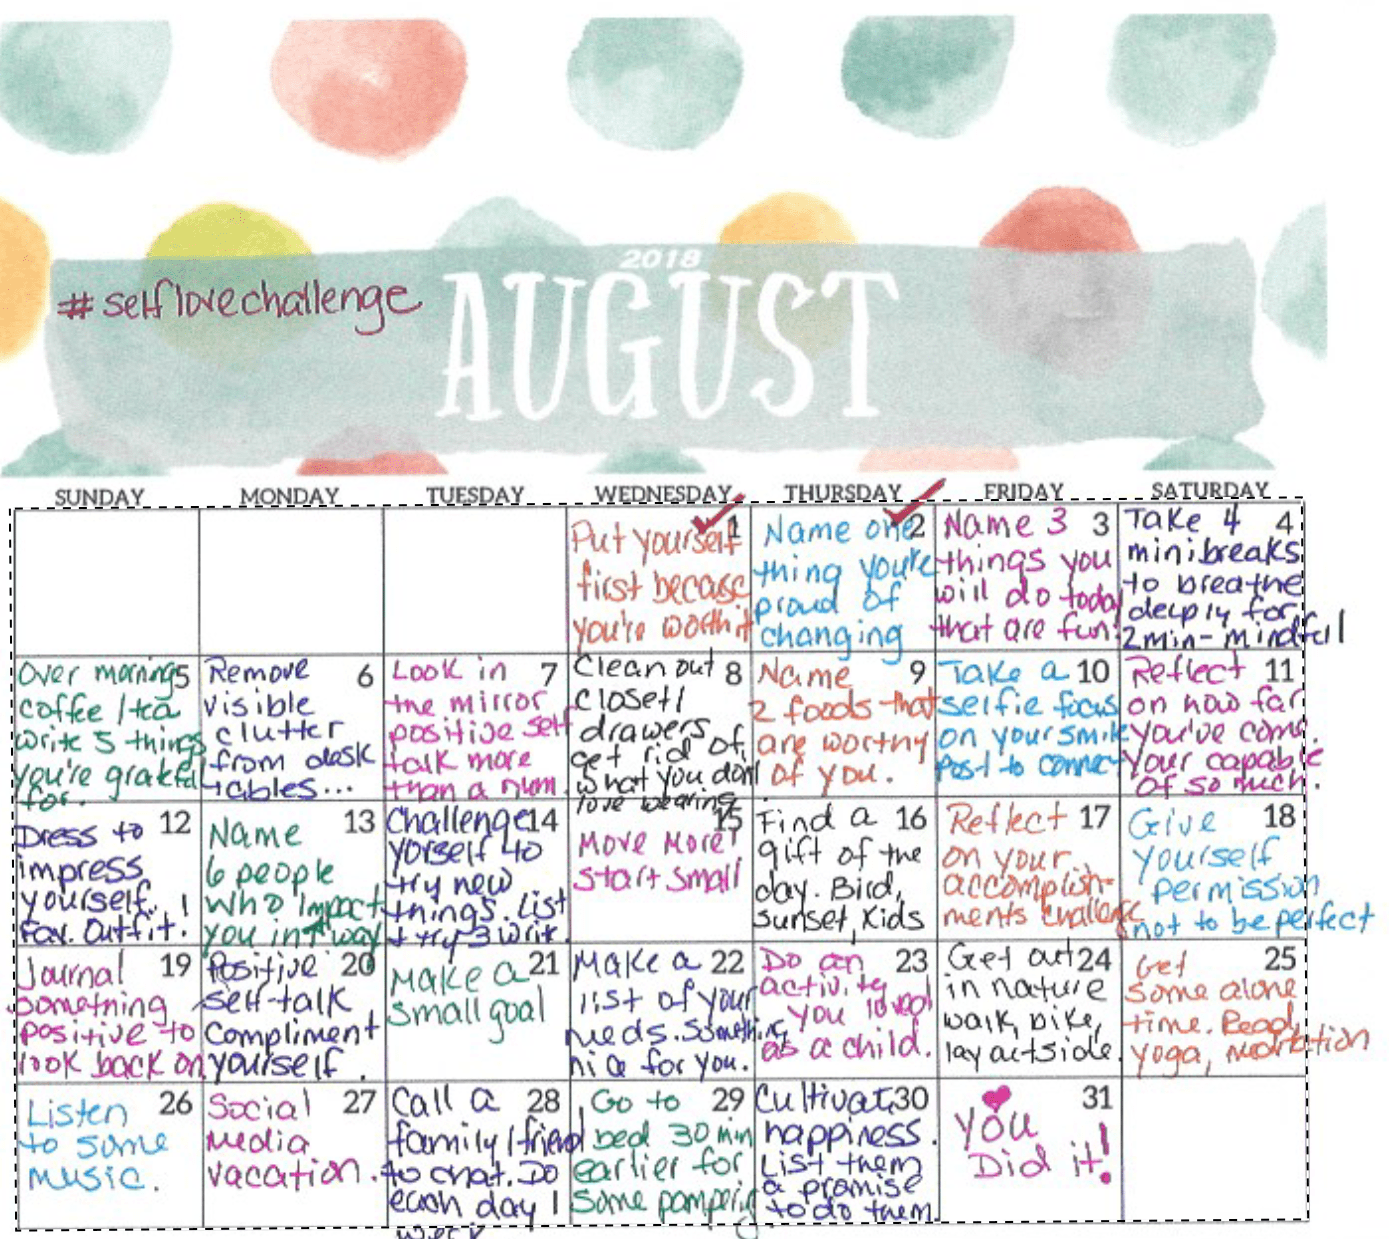 2018
#selflovechallenge
AUGUST
SUNDAY MONDAY TUESDAY WEDNESDAY THURSDAY FRIDAY SATURDAY
1
Put yourself
first because
you're worth it
2
Name one
thing you're
proud of
changing
3
Name 3
things you
will do today
that are fun!
4
Take 4
minibreaks
to breathe
deeply for
2min-mindful
5
Over morning
coffee/tea
write 5 things
you're grateful
for.
6
Remove
visible
clutter
from desk
tables...
7
Look in
the mirror
positive self
talk more
than a mom
8
Clean out
closet/
drawers
get rid of
what you don't
love wearing
9
Name
2 foods that
are worthy
of you.
10
Take a
selfie focus
on your smile
Post to connect
11
Reflect
on how far
you've come.
Your capable
of so much.
12
Dress to
impress
yourself.
Fav. Outfit!
13
Name
6 people
who impact
you in + way
14
Challenge
yorself to
try new
things. List
+ try 3 write.
15
Move More!
Start Small
16
Find a
gift of the
day. Bird,
sunset, Kids
17
Reflect
on your
accomplish-
ments challenge
18
Give
yourself
permission
not to be perfect
19
Journal
something
positive to
look back on
20
Positive
self-talk
Compliment
yourself.
21
Make a
small goal
22
Make a
list of your
needs. Something
nice for you.
23
Do an
activity
you loved
as a child.
24
Get out
in nature
walk, bike,
lay outside.
25
Get
some alone
time. Read,
yoga, meditation
26
Listen
to some
music.
27
Social
media
vacation.
28
Call a
family/friend
to chat. Do
each day 1
week
29
Go to
bed 30 min
earlier for
some pampering
30
Cultivate
happiness.
List them
a promise
to do them.
31
You
Did it!